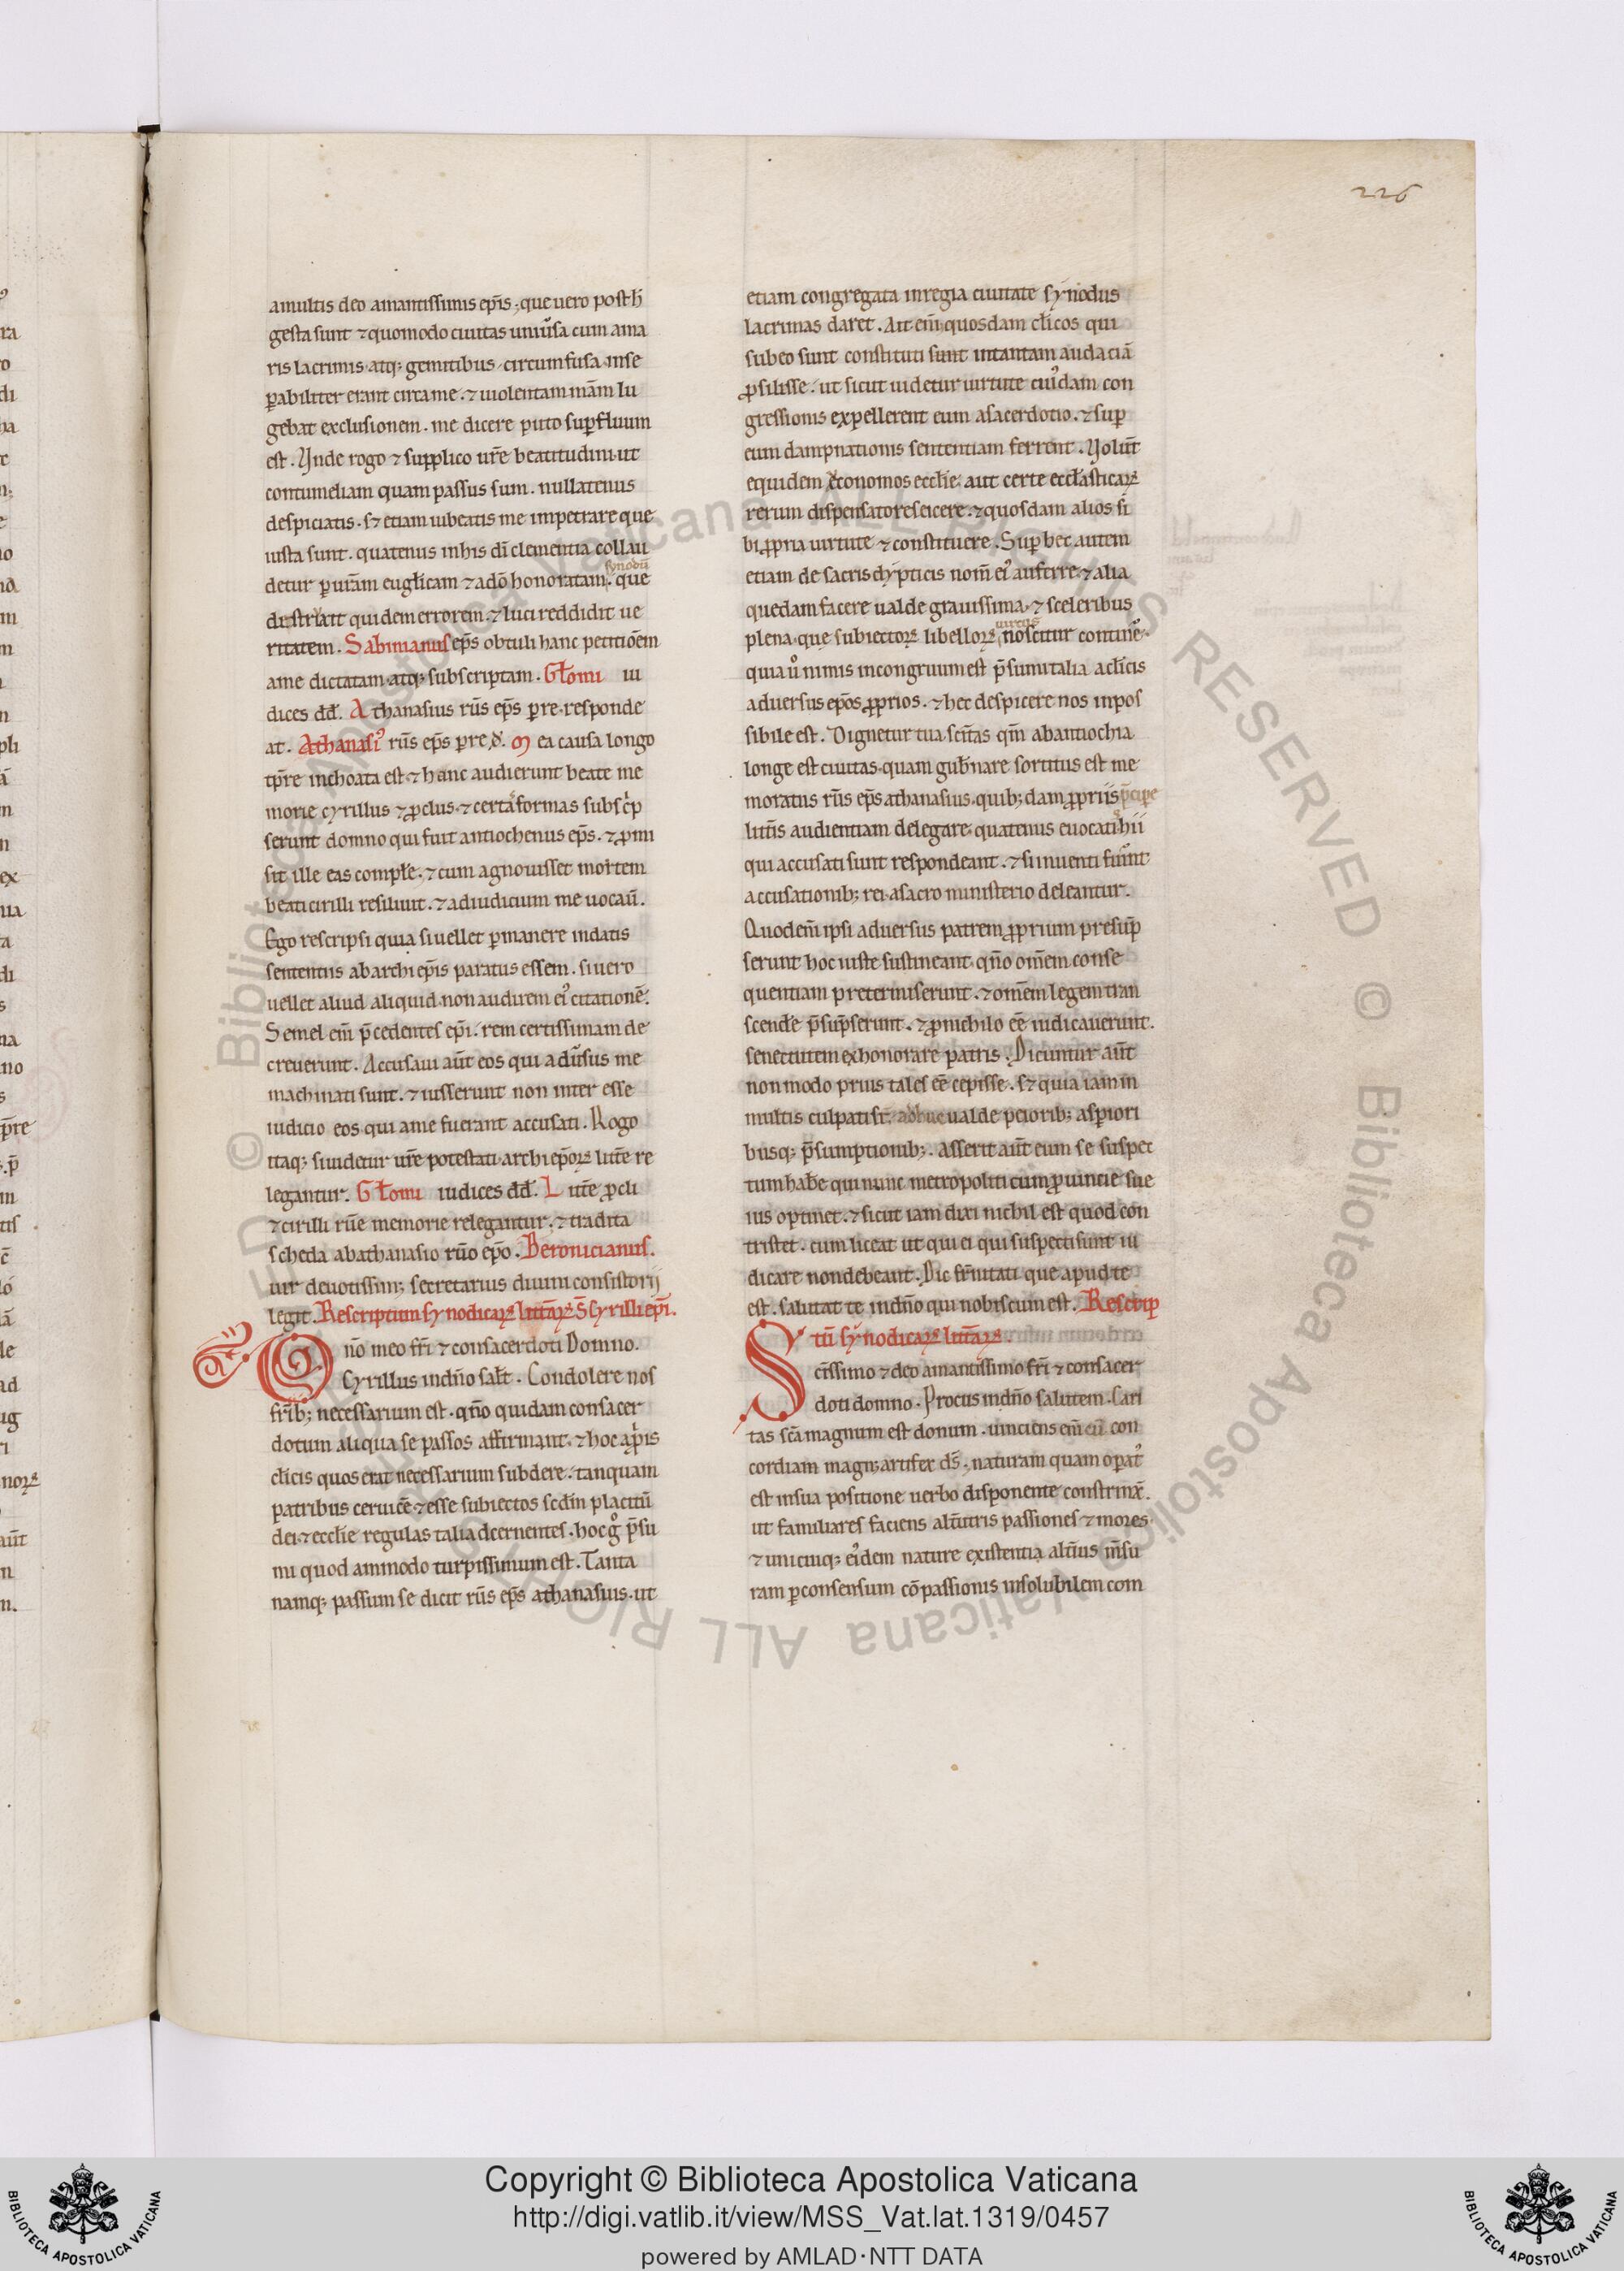 226
amultis deo amantissimis ep̄is; que uero post h̄
gesta sunt ⁊ quomodo ciuitas uniūsa cum ama
ris lacrimis atq; gemitibus circumfusa inse
ꝑabiliter erant circa me. ⁊ uiolentam mām lu
gebat exclusionem. me dicere puto suꝑfluum
est. Vnde rogo ⁊ supplico ur̄e beatitudini ut
contumeliam quam passus sum. nullatenus
despiciatis. sꝫ etiam iubeatis me impetrare que
iusta sunt. quatenus inhis dī clementia collau
synodū
detur ꝑ ur̄am euḡlicam ⁊ adō honoratam. que
dirit quidem errorem. ⁊ luci reddidit ue
ritatem. Sabinianus ep̄s obtuli hanc petitiōem
ame dictatam atq; subscriptam. Gl̄omi iu
dices dd̄. Athanasius rūs ep̄s ꝑre responde
at. Athanasiꝰ rūs ep̄s ꝑre. d̄. M ea causa longo
tp̄re inchoata est ⁊ hanc audierunt beate me
morie cyrillus ⁊ ꝓclus. ⁊ certas formas subsc̄p
serunt domno qui fuit antiochenus ep̄s. ⁊ ꝓmi
sit ille eas compl̄e. ⁊ cum agnouisset mortem
beati cirilli resiliuit. ⁊ adiudicium me uocaū.
Ego rescripsi quia si uellet ꝑmanere indatis
sententiis ab archiep̄is paratus essem. si uero
uellet aliud aliquid non audirem eiꝰ citationē.
Semel em̄ p̄cedentes ep̄i. rem certissimam de
creuerunt. Accusaui aūt eos qui adūsus me
machinati sunt. ⁊ iusserunt non inter esse
iudicio eos qui ame fuerant accusati. Rogo
itaq; si uidetur ur̄e potestati archiep̄oꝝ litt̄e re
legantur. Gl̄omi iudices dd̄. Litt̄e ꝓcli
⁊ cirilli rūe memorie relegantur. ⁊ tradita
scheda ab athanasio rūo ep̄o. Beronicianus.
uir deuotissim; secretarius diuini consistorij
legit. Rescriptum synodicaꝝ litt̄aꝝ S̄ Cyrilli ep̄i.
Dn̄o meo fr̄i ⁊ consacerdoti Domno.
Cyrillus indn̄o sal̄t. Condolere nos
fr̄ib; necessarium est. qn̄o quidam consacer
dotum aliqua se passos affirmant. ⁊ hoc ap̄ris
cl̄icis quos erat necessarium subdere. tanquam
patribus ceruicē. ⁊ esse subiectos sc̄din placitū
dei. ⁊ eccl̄ie regulas talia dcernentes. hoc g̊ p̄su
mi quod ammodo turpissimum est. Tanta
namq; passum se dicit rūs ep̄s athanasius. ut
etiam congregata inregia ciuitate synodus
lacrimas daret. Ait em̄; quosdam cl̄icos qui
subeo sunt constituti sunt intantam audaciā
ꝓsilisse. ut sicut uidetur uirtute cuiꝰdam con
gressionis expellerent eum asacerdotio. ⁊ suꝑ
eum dampnationis sententiam ferrent. Nolūt
equidem economos eccl̄ie. aut certe eccl̄asticaꝝ
rerum dispensatores eicere. ⁊ quosdam alios si
bi ꝓpria uirtute ⁊ constituere. Suꝑ hec autem
etiam de sacris dypticis nom̄ eiꝰ auferre. ⁊ alia
quedam facere ualde grauissima. ⁊ sceleribus
uirtus
plena. que subiectoꝝ libelloꝝ noscitur continē.
quia ū nimis incongruum est p̄sumi talia acl̄icis
aduersus ep̄os ꝓprios. ⁊ hec despicere nos inpos
sibile est. Dignetur tua sc̄itas qm̄ abantiochia
longe est ciuitas quam gub̄nare sortitus est me
moratus rūs ep̄s athanasius. quib; dam ꝓpriis p̄cipe
litt̄is audientiam delegare. quatenus euocati hii
qui accusati sunt respondeant. ⁊ si inuenti fuīnt
accusationib; rei. asacro ministerio deleantur.
Quod em̄ ipsi aduersus patrem ꝓprium presūp
serunt hoc iuste sustineant. qn̄o om̄em conse
quentiam pretermiserunt. ⁊ omēm legem tran
scend̄e p̄sūpserunt. ⁊ ꝓnichilo eē iudicauerunt.
senectutem exhonorare patris. Dicuntur aūt
non modo prius tales eē cepisse. sꝫ quia iam in
multis culpati sr̄. adhuc ualde peiorib; asperiori
busq; p̄sumptionib;. Asserit aūt eum se suspec
tum hab̄e qui nunc metropoliticum ꝓuincie sue
ius optinet. ⁊ sicut iam dixi nichil est quod con
tristet. cum liceat ut qui ei qui suspecti sunt iu
dicare non debeant. Dic fr̄nitati que apud te
est. salutat te indn̄o qui nobiscum est. Rescrip
tū synodicaꝝ litt̄aꝝ.
Sc̄issimo ⁊ deo amantissimo fr̄i ⁊ consacer
doti domno. Procus indn̄o salutem. Cari
tas sc̄a magnum est donum. uinciens em̄ eū con
cordiam magn; artifex ds̄; naturam quam oꝑatꝰ
est insua positione uerbo disponente constrinx̄.
ut familiares faciens alt̄utris passiones ⁊ mores
⁊ unicuiq; eiꝰdem nature existentia alt̄ius m̄su
ram ꝑconsensum cōpassionis insolubilem com
Copyright © Biblioteca Apostolica Vaticana
http://digi.vatlib.it/view/MSS_Vat.lat.1319/0457
powered by AMLAD·NTT DATA